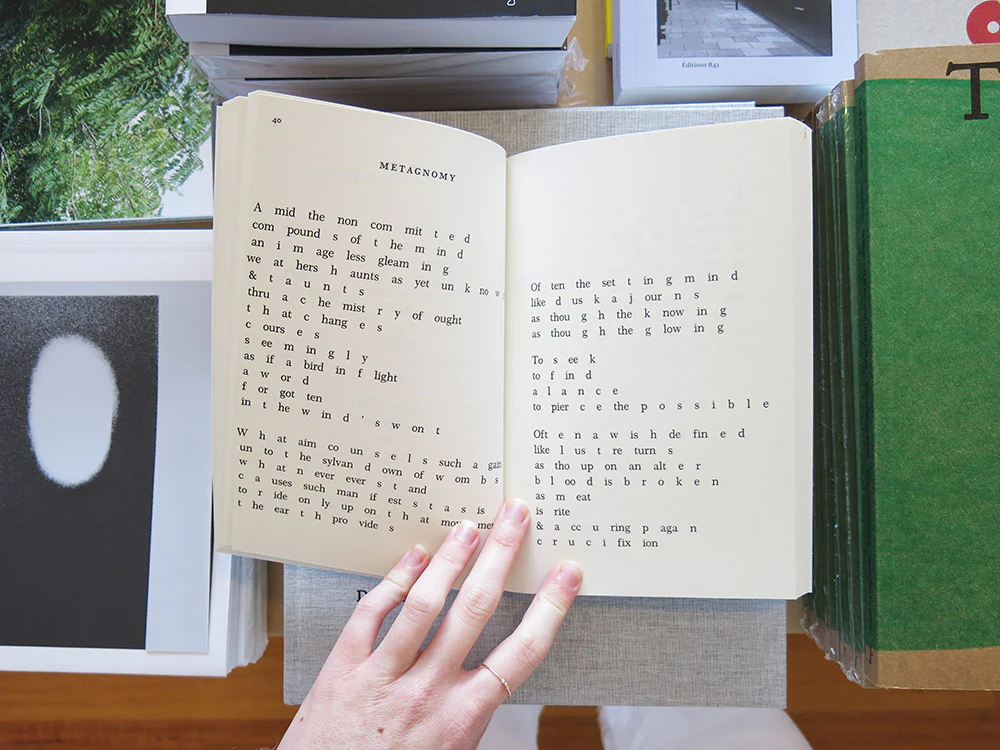 Éditions B42
T
40
METAGNOMY
A mid the non com mit t e d
com pound s of t he m in d
an i m age less gleam in g
we at hers h aunts as yet un k no w
& t a un t s
thru a c he mist r y of ought
t h at c hang e s
c ours e s
s ee m in g l y
as if a bird in f light
a w or d
f or got ten
in t he w in d ' s won t
W h at aim co un s e l s such a gain
un to t he sylvan d own of w om b s
w h at n ever ever s t and
c a uses such man if est s t a s is
to r ide on ly up on t h at mov
t he ear t h pro vide s
Of ten the set t in g m in d
like d us k a j our n s
as thou g h the k now in g
as thou g h the g low in g
To s ee k
to f in d
a l a n c e
to pier c e the p o s s i b l e
Oft e n a w is h de fin e d
like l us t re turn s
as tho up on an alt e r
b l oo d is b r o k e n
as m eat
is rite
& a cc u ring p aga n
c r u c i fix ion